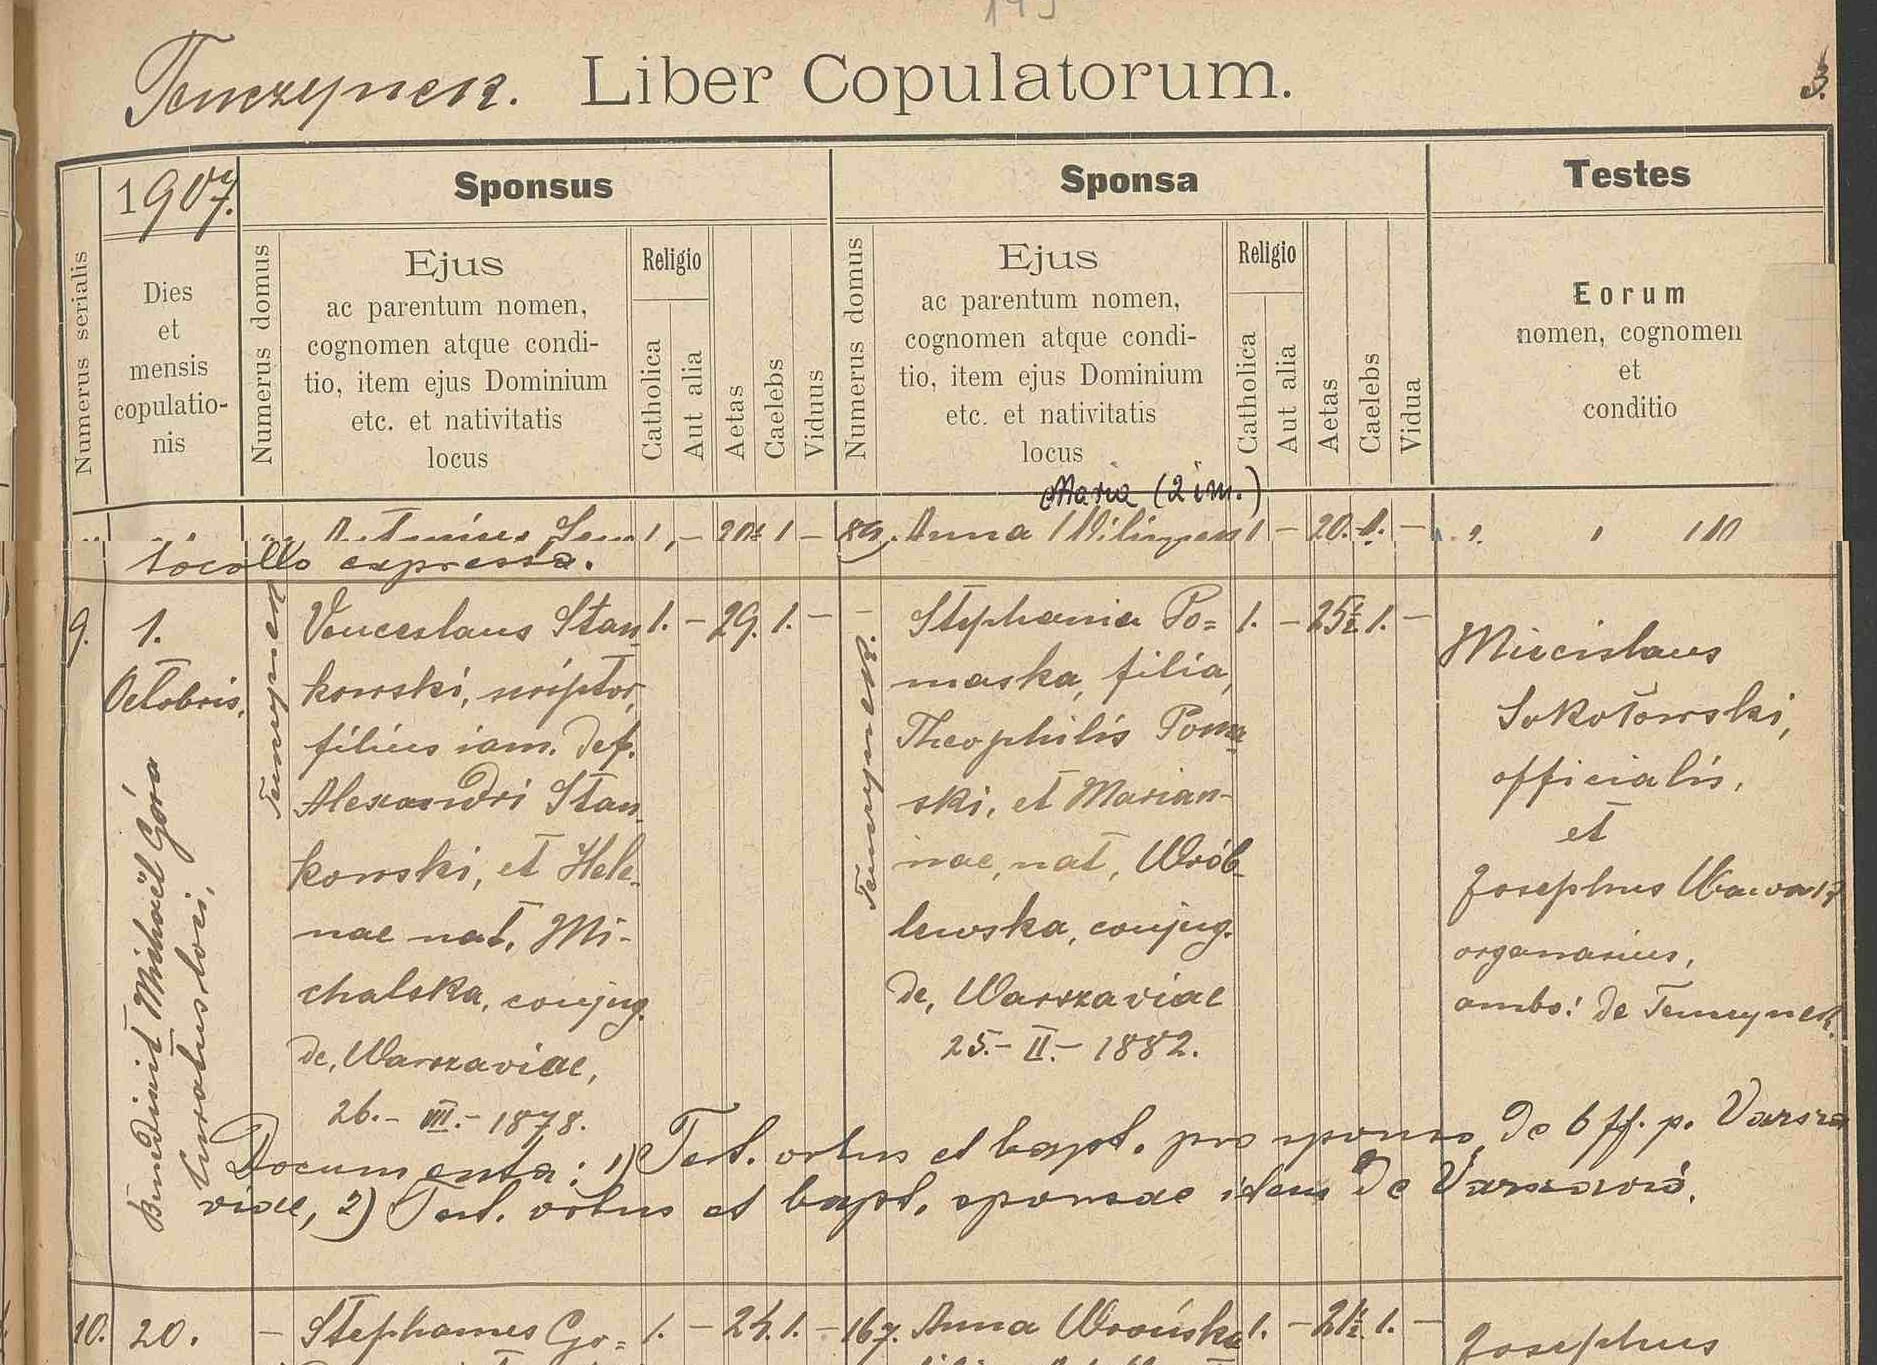 Tenczynek. Liber Copulatorum.
3.
1907.
Sponsus
Sponsa
Testes
Numerus serialis
Dies
et
mensis
copulatio-
nis
Numerus domus
Ejus
ac parentum nomen,
cognomen atque condi-
tio, item ejus Dominium
etc. et nativitatis
locus
Religio
Catholica
Aut alia
Aetas
Caelebs
Viduus
Numerus domus
Ejus
ac parentum nomen,
cognomen atque condi-
tio, item ejus Dominium
etc. et nativitatis
locus
Religio
Catholica
Aut alia
Aetas
Caelebs
Vidua
Eorum
nomen, cognomen
et
conditio
Maria (2 im.)
Antonius
1. -
1 -
89. Anna
1 - 20. 1. -
expressa.
9.
1.
Octobris.
Benedixit Michaël Góra
Curatus loci,
Tenczynek
Venceslaus Stan-
kowski, scriptor,
filius iam. def.
Alexandri Stan-
kowski, et Hele-
nae nat. Mi-
chalska, conjug.
de, Warszaviae,
26.- VII.- 1878.
1. - 29. 1. -
-
Tenczynek.
Stephania Po=
maska, filia,
Theophilis Poma-
ski, et Marian-
nae, nat, Wrób-
lewska, conjug.
de, Warszaviae
25.- II.- 1882.
1. - 25½ 1. -
Miecislaus
Sokołowski,
officialis,
et
Josephus
organarius,
ambo: de Tenczynek.
Documenta: 1) Test. ortus et bapt. pro sponso de 6 ff. p. Varsza
viae, 2) Test. ortus et bapt. sponsae idem de
10.
20.
- Stephanus Go=
1. - 24. 1. -
167. Anna Wrońska
1. - 21½ 1. -
Josephus